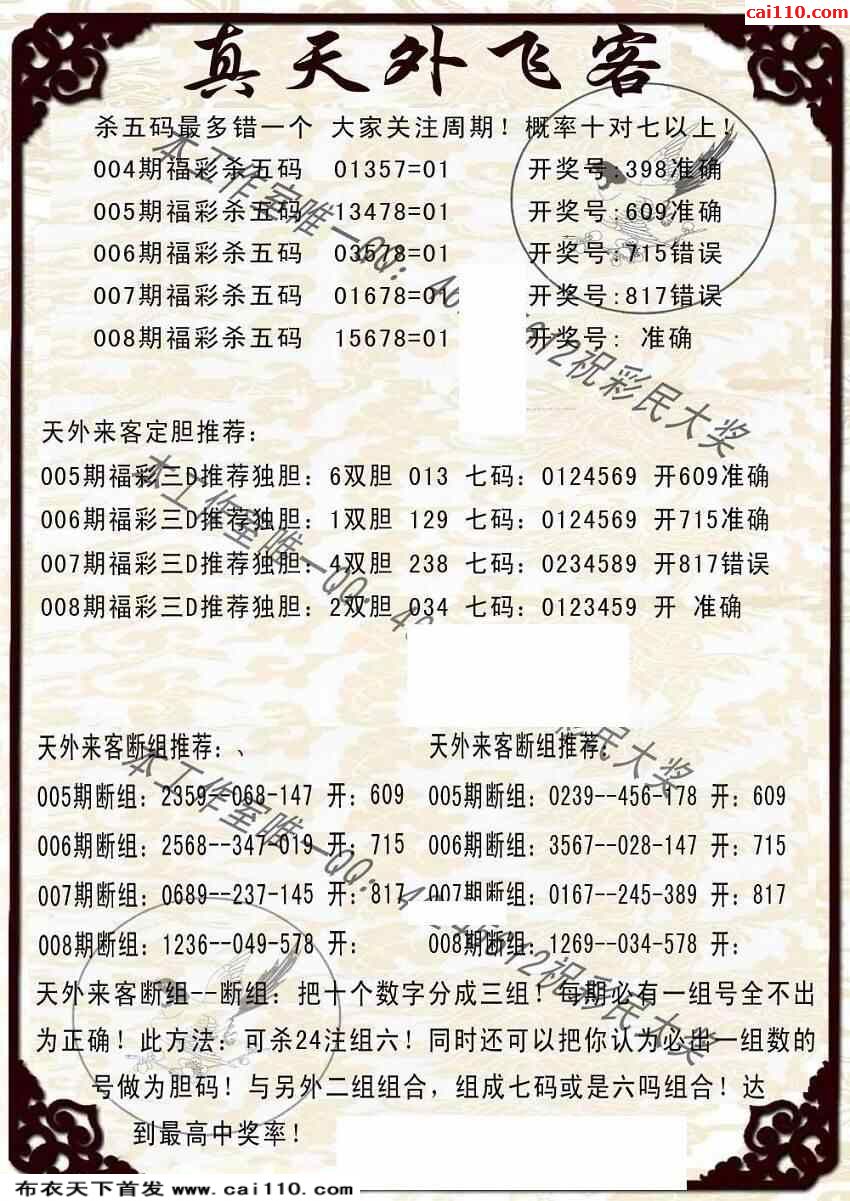 cai110.com
真天外飞客
杀五码最多错一个 大家关注周期！概率十对七以上！
004期福彩杀五码 01357=01 开奖号:398准确
005期福彩杀五码 13478=01 开奖号:609准确
006期福彩杀五码 03578=01 开奖号:715错误
007期福彩杀五码 01678=01 开奖号:817错误
008期福彩杀五码 15678=01 开奖号: 准确
天外来客定胆推荐：
005期福彩三D推荐独胆：6双胆 013 七码：0124569 开609准确
006期福彩三D推荐独胆：1双胆 129 七码：0124569 开715准确
007期福彩三D推荐独胆：4双胆 238 七码：0234589 开817错误
008期福彩三D推荐独胆：2双胆 034 七码：0123459 开 准确
天外来客断组推荐：、 天外来客断组推荐：
005期断组：2359--068-147 开：609 005期断组：0239--456-178 开：609
006期断组：2568--347-019 开：715 006期断组：3567--028-147 开：715
007期断组：0689--237-145 开：817 007期断组：0167--245-389 开：817
008期断组：1236--049-578 开： 008期断组：1269--034-578 开：
天外来客断组--断组：把十个数字分成三组！每期必有一组号全不出
为正确！此方法：可杀24注组六！同时还可以把你认为必出一组数的
号做为胆码！与另外二组组合，组成七码或是六吗组合！达
到最高中奖率！
本工作室唯一QQ：
祝彩民大奖
本工作室唯一QQ：
彩民大奖
本工作室唯一QQ：
祝彩民大奖
布衣天下首发 www.cai110.com